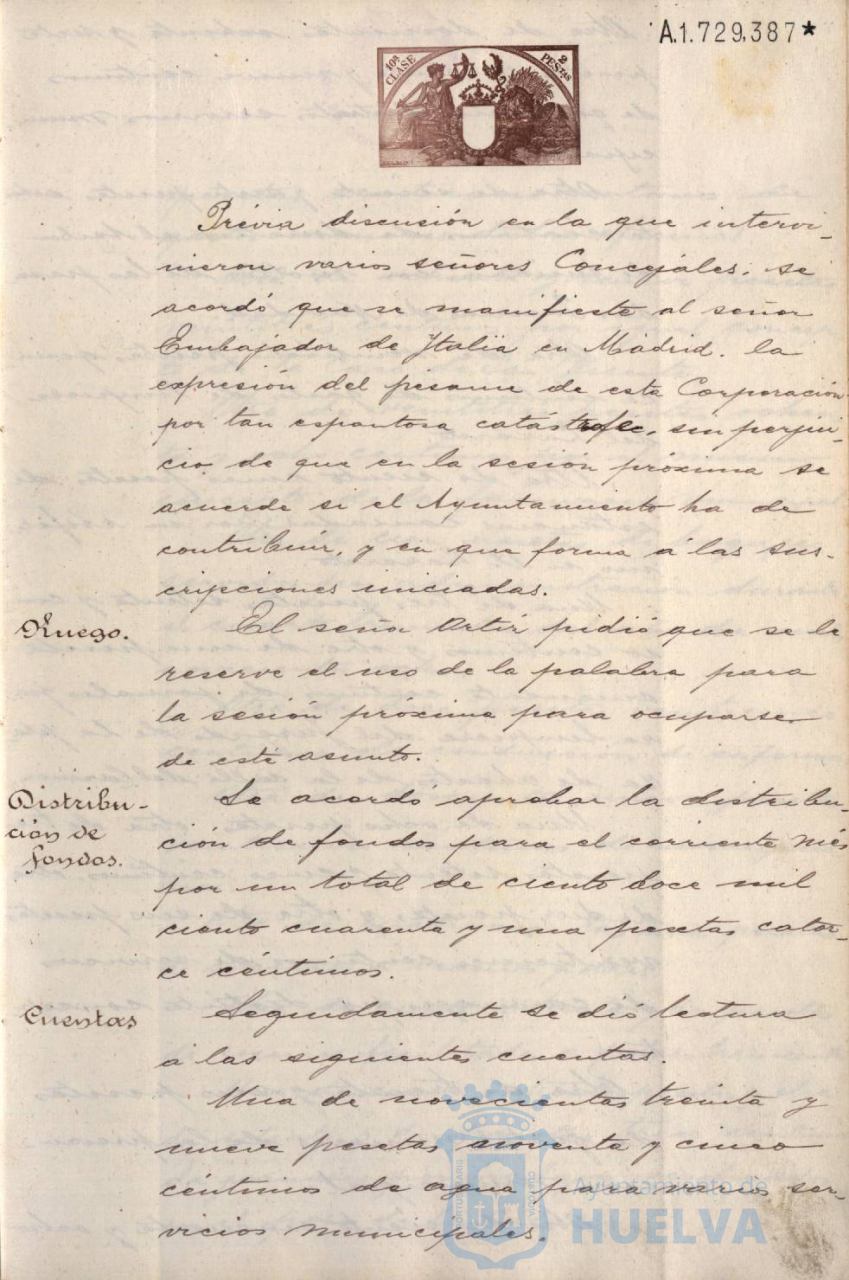 A.1.729.387*
10ª CLASE
2 PESTAS
Prévia discusión en la que intervi-
nieron varios señores Concejáles, se
acordó que se manifieste al señor
Embajador de Italia en Madrid, la
expresión del pésame de esta Corporación
por tan espantosa catástrofe, sin perjui-
cio de que en la sesión próxima se
acuerde si el Ayuntamiento ha de
contribuir, y en que forma á las sus-
cripciones iniciadas.
Ruego.
El señor Ortiz pidió que se le
reserve el uso de la palabra para
la sesión próxima para ocuparse
de este asunto.
Distribu-
ción de
fondos.
Se acordó aprobar la distribu-
ción de fondos para el corriente més
por un total de ciento doce mil
ciento cuarenta y una pesetas cator-
ce céntimos.
Cuentas
Seguidamente se dió lectura
á las siguientes cuentas.
Una de novecientas treinta y
nueve pesetas noventa y cinco
céntimos de agua para varios ser-
vicios municipales.
Ayuntamiento de
HUELVA